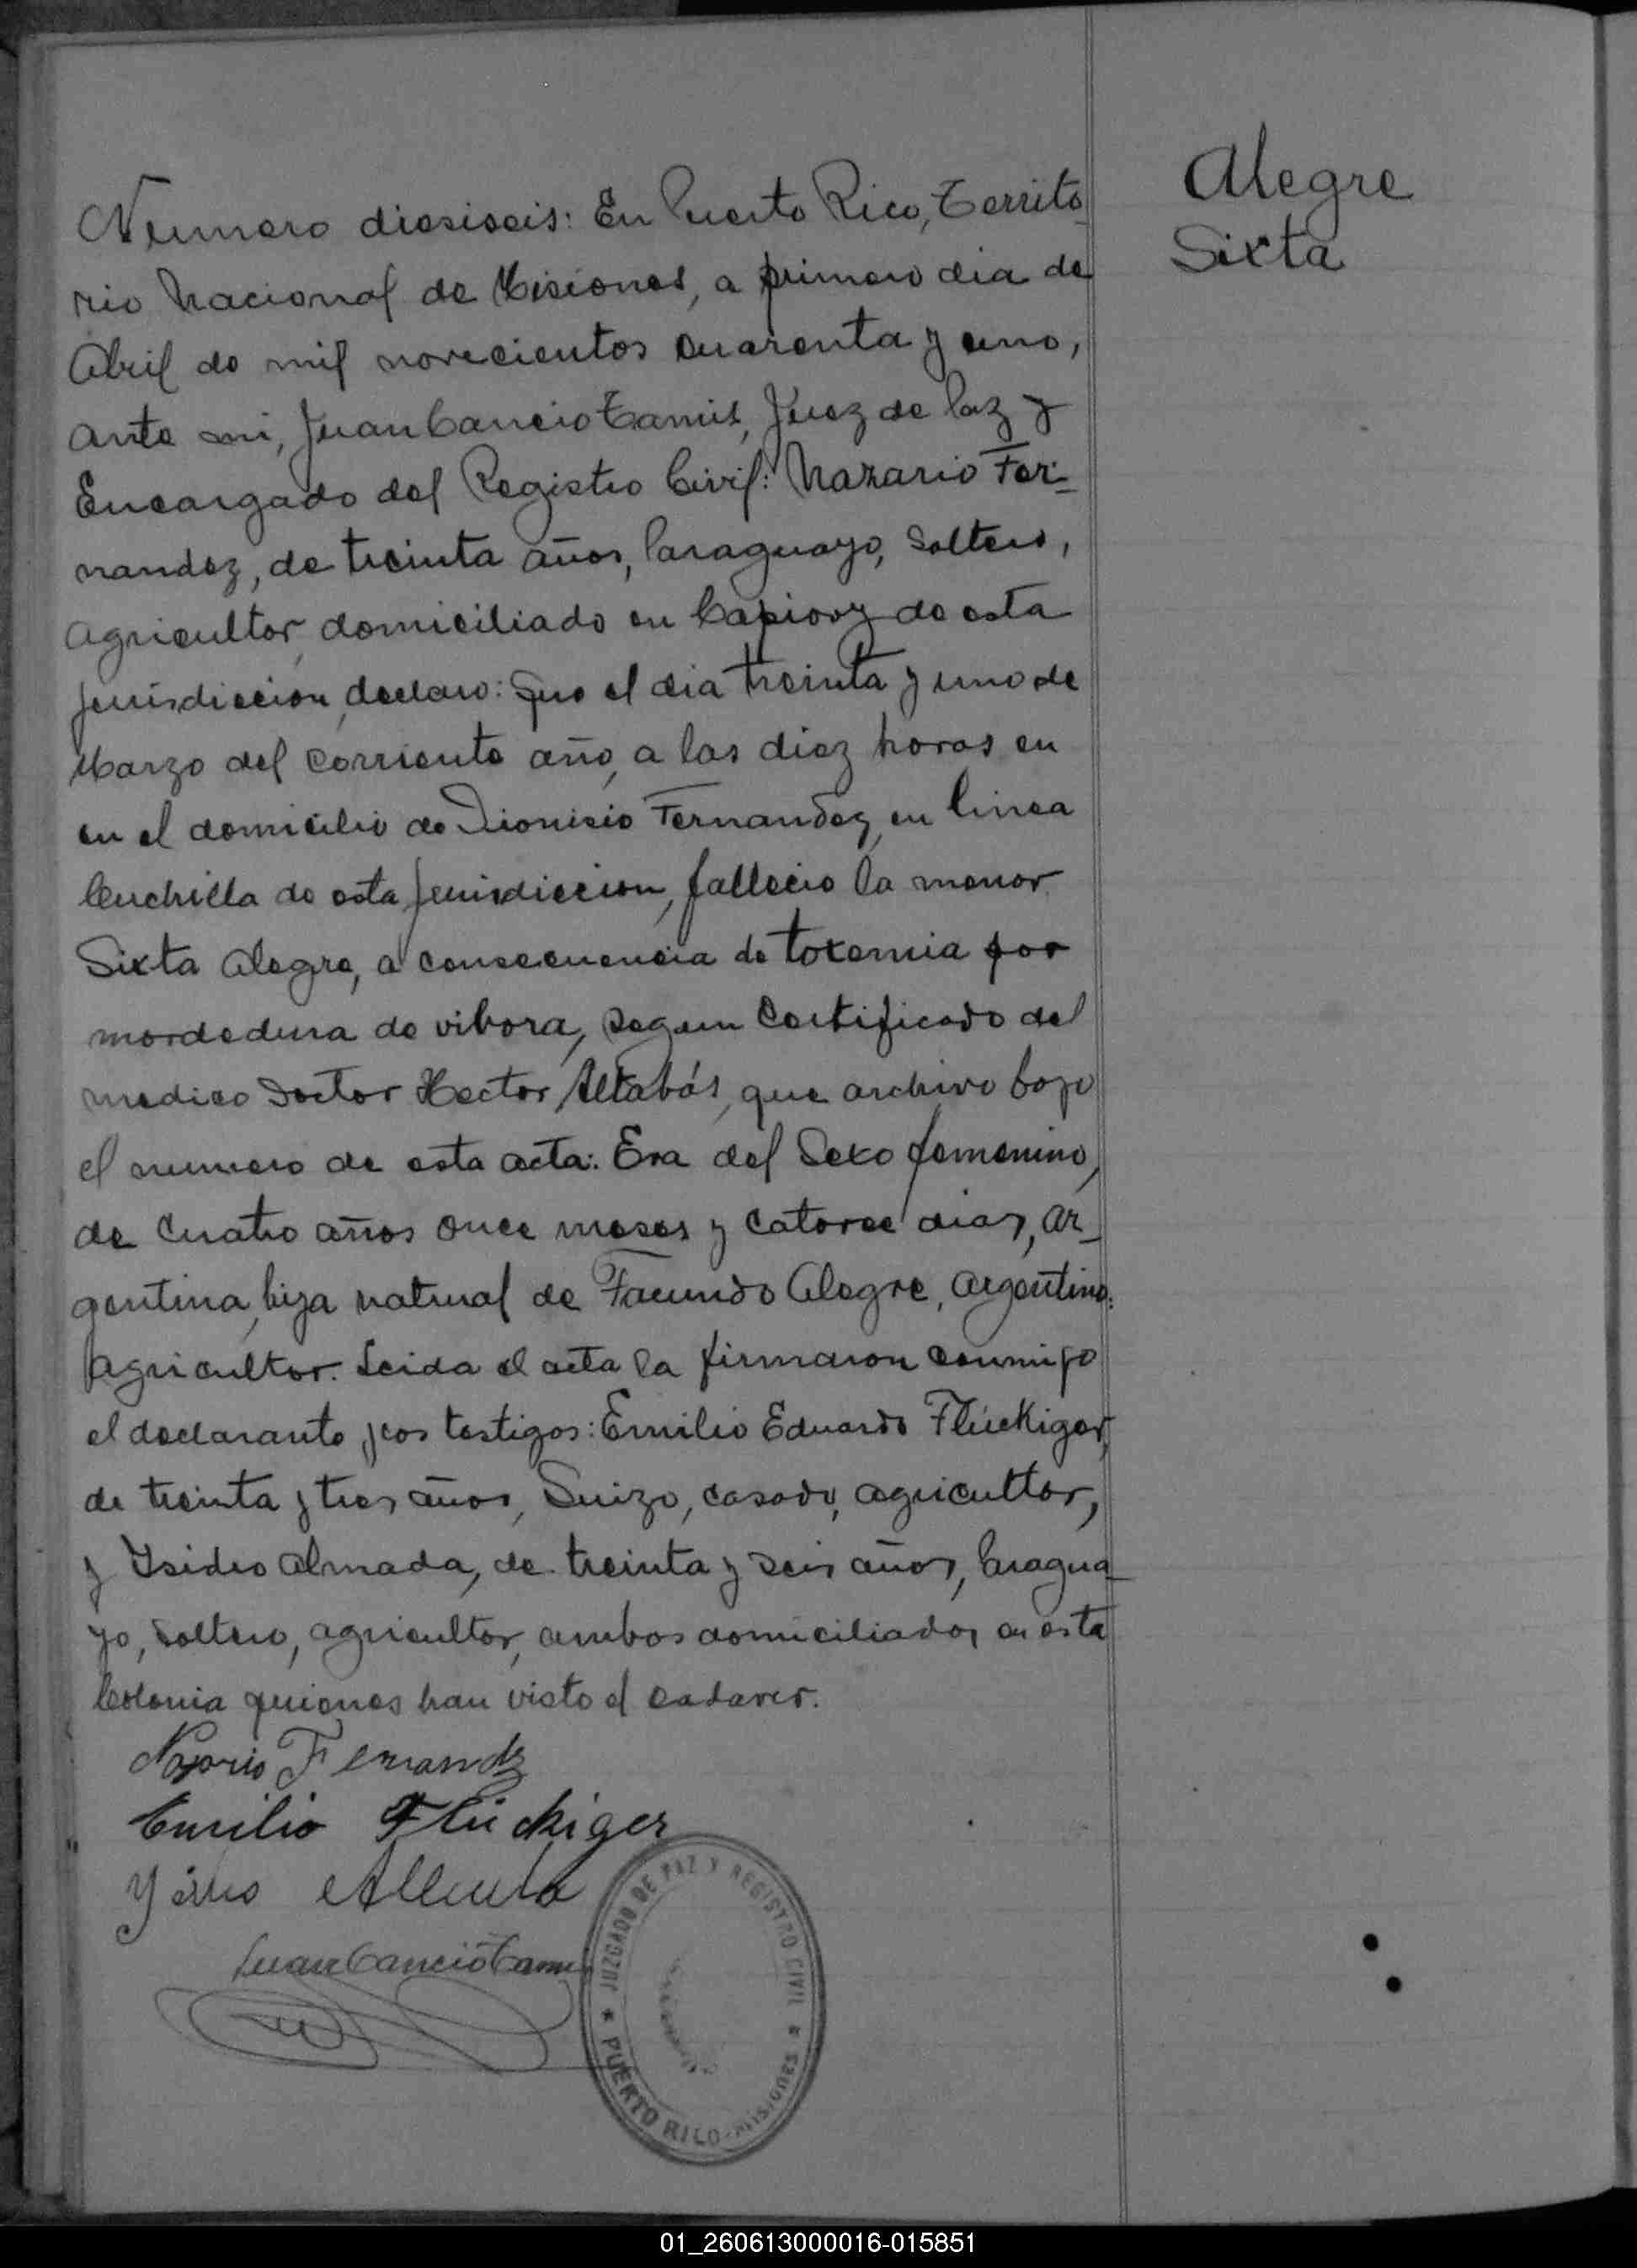 Alegre
Sixta
Numero diesiseis: En Puerto Rico, Territo-
rio Nacional de Misiones, a primero dia de
Abril de mil novecientos cuarenta y uno,
ante mi, Juan Cancio Camis, Juez de Paz y
Encargado del Registro Civil: Nazario Fer-
nandez, de treinta años, Paraguayo, soltero,
agricultor, domiciliado en Capiovy de esta
jurisdiccion, declaro: Que el dia treinta y uno de
Marzo del corriente año, a las diez horas en
en el domicilio de Dionisio Fernandez, en linea
Cuchilla de esta jurisdiccion, fallecio la menor
Sixta Alegre, a consecuencia de toxemia por
mordedura de vibora, segun certificado del
medico Doctor Hector Altabás, que archivo bajo
el numero de esta acta: Era del Sexo femenino,
de cuatro años once meses y catorce dias, ar-
gentina, hija natural de Facundo Alegre, argentino:
agricultor. Leida el acta la firmaron conmigo
el declarante y los testigos: Emilio Eduardo Flückiger,
de treinta y tres años, Suizo, casado, agricultor,
y Ysidro Almada, de treinta y seis años, Paragua-
yo, soltero, agricultor, ambos domiciliados en esta
Colonia quienes han visto el cadaver.
Nazario Fernandz
Emilio Flückiger
Juan Cancio Camis
JUZGADO DE PAZ Y REGISTRO CIVIL
★ PUERTO RICO-MISIONES ★
01_260613000016-015851